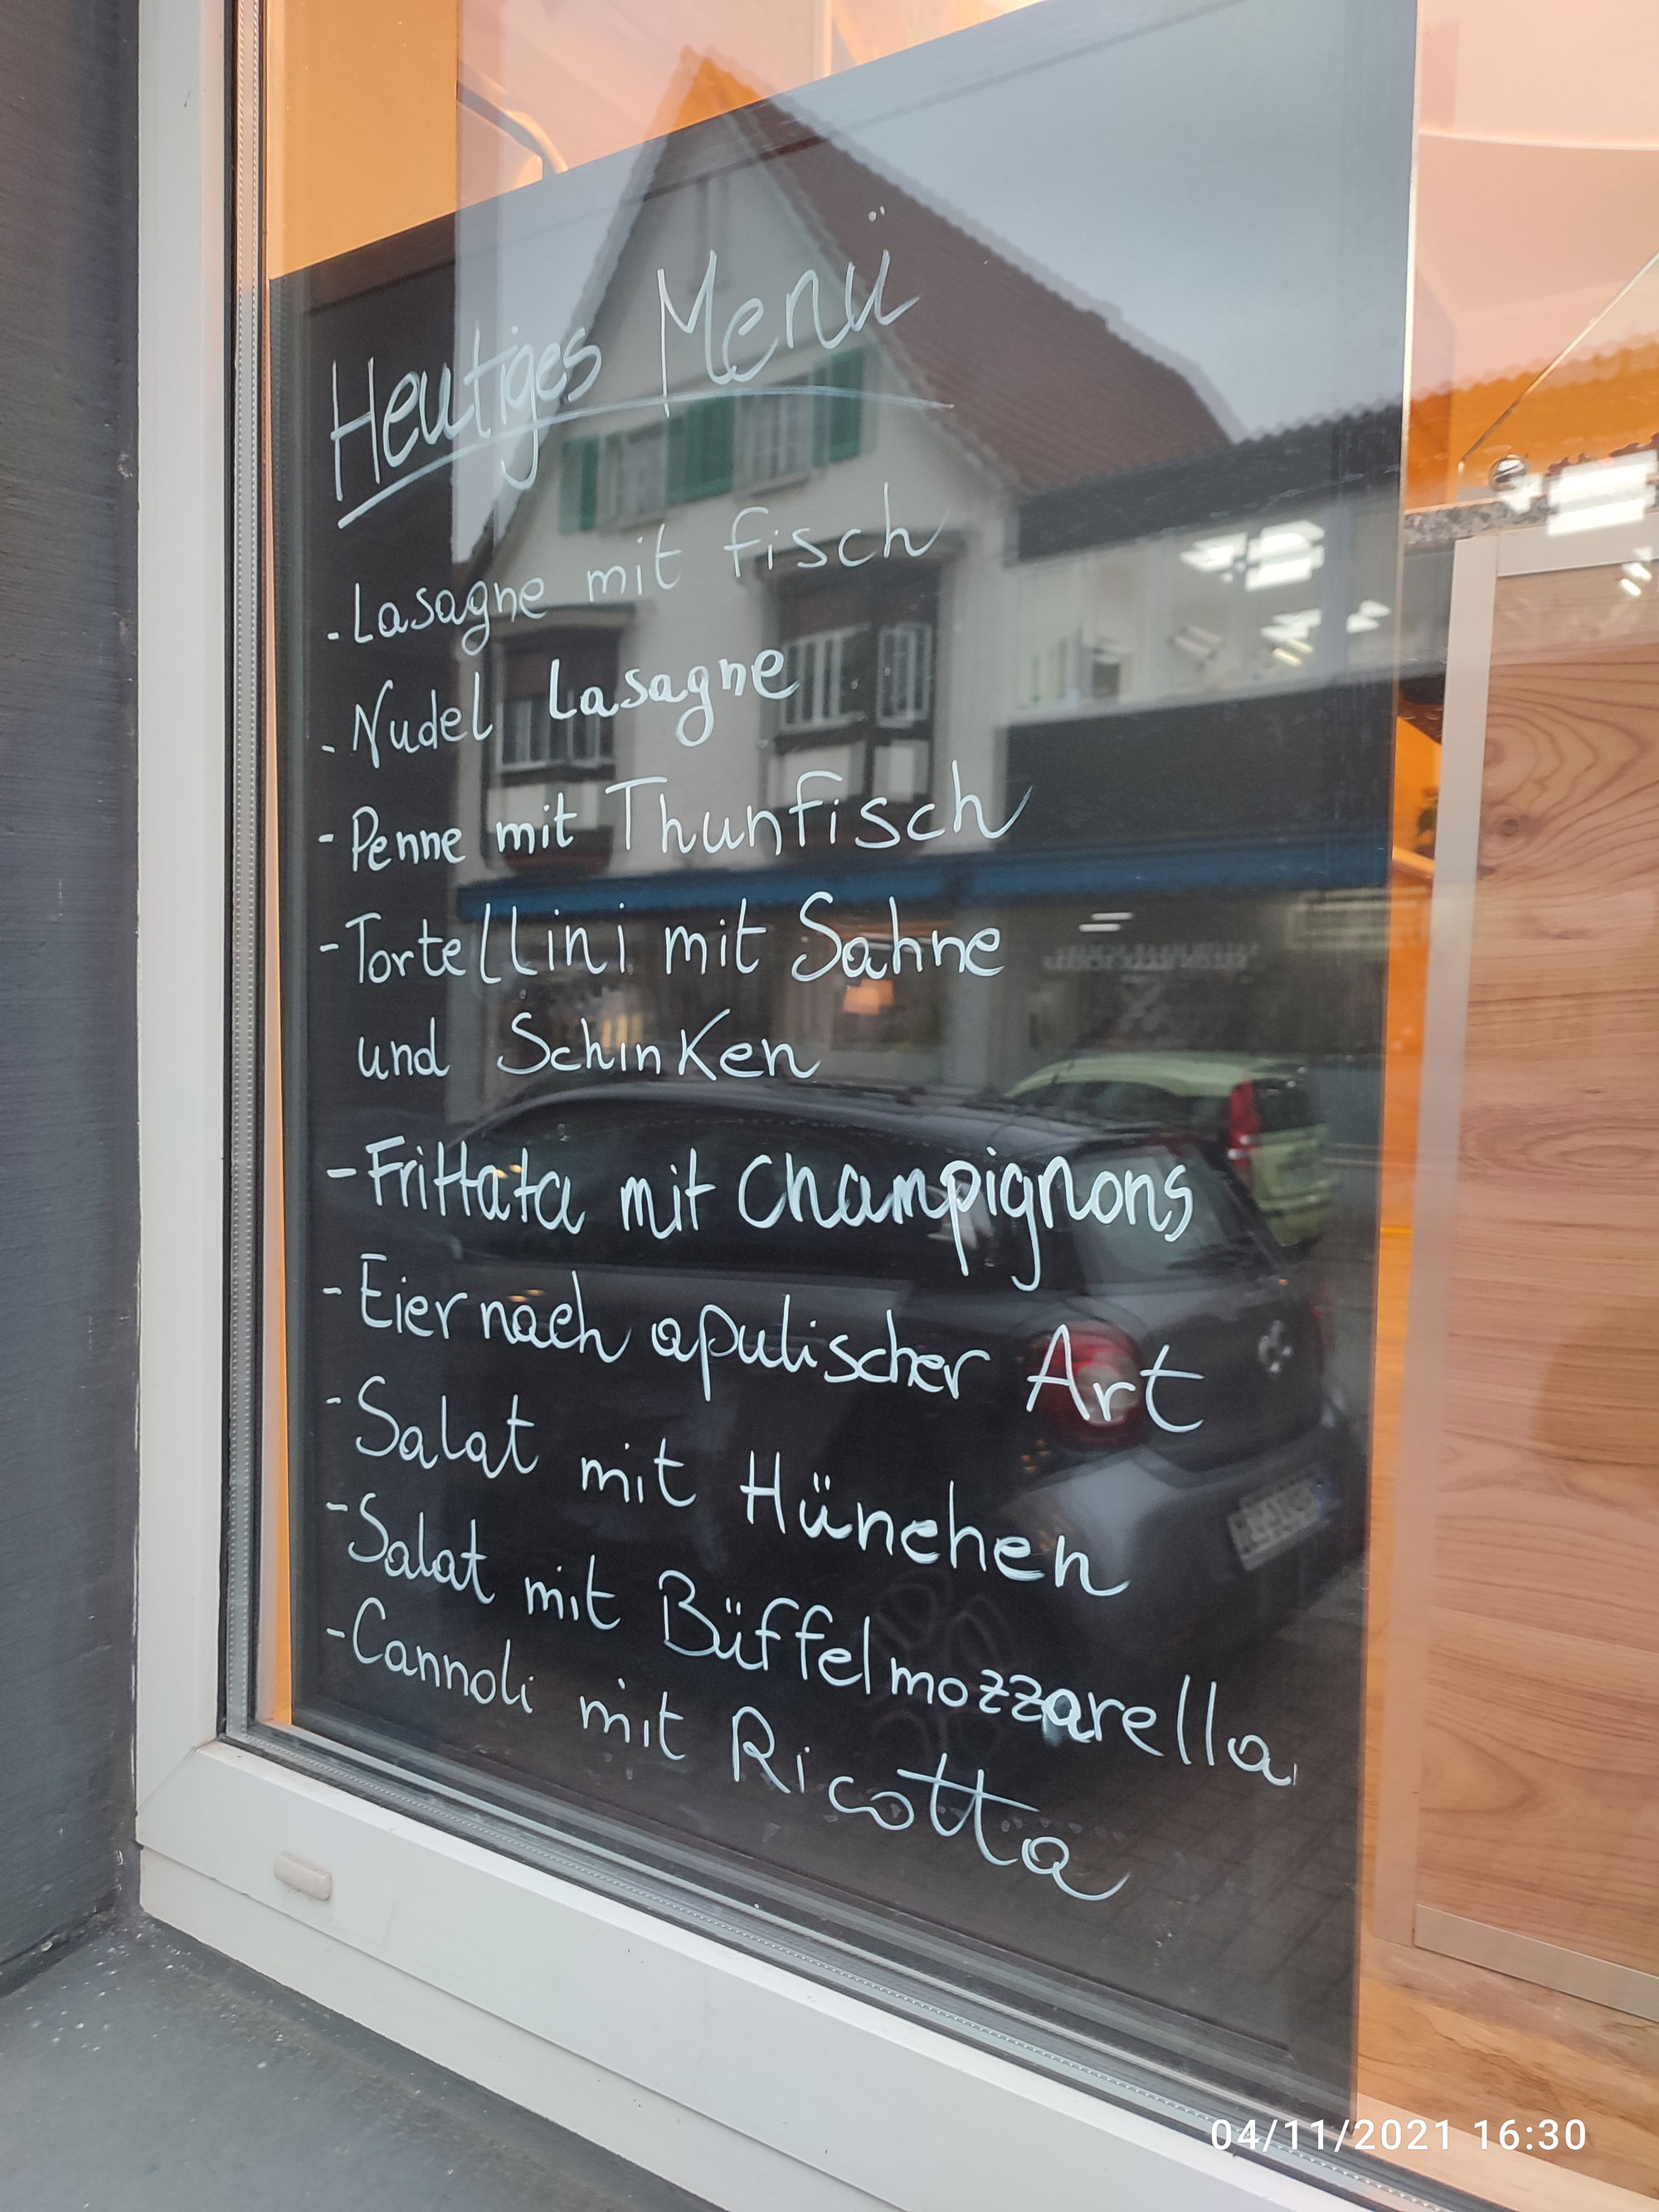 Heutiges Menü
- Lasagne mit fisch
- Nudel Lasagne
- Penne mit Thunfisch
- Tortellini mit Sahne
und Schinken
- Frittata mit Champignons
- Eier nach apulischer Art
- Salat mit Hünchen
- Salat mit Büffelmozzarella
- Cannoli mit Ricotta
04/11/2021 16:30